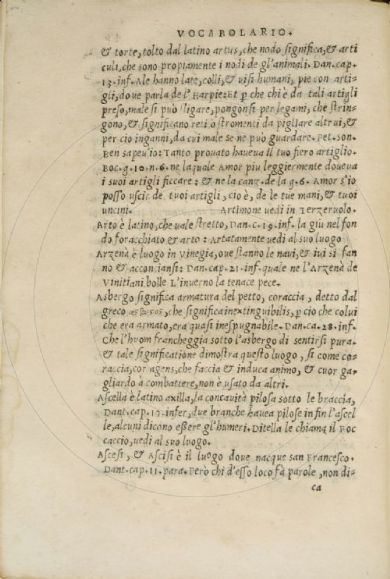 VOCABOLARIO.
& torte, tolto dal latino artus, che nodo significa, & arti
culi, che sono propiamente i nodi de gl'animali. Dan. cap.
13. inf. Ale hanno late, colli, & visi humani, pie con arti-
gli, doue parla de l'Harpie: Et p che chi è da tali artigli
preso, male si può sligare, pongonsi per legami, che strin-
gono, & significano reti o stromenti da pigliare altrui, &
per cio inganni, da cui male se ne può guardare. Pet. son.
Ben sapeu'io: Tanto prouato haueua il tuo fiero artiglio.
Boc. g. 10. n. 6. ne la quale Amor piu leggiermente doueua
i suoi artigli ficcare: & ne la canz. de la g. 6. Amor s'io
posso uscir de tuoi artigli, cio è, de le tue mani, & tuoi
uncini. Artimone uedi in Terzeruolo.
Arto è latino, che uale stretto, Dan. c. 19. inf. la giu nel fon
do foracchiato & arto: Artatamente uedi al suo luogo
Arzenà è luogo in Vinegia, oue stanno le naui, & iui si fan
no & acconciansi: Dan. cap. 21. inf. quale ne l'Arzenà de
Vinitiani bolle L'inuerno la tenace pece.
Asbergo significa armatura del petto, coraccia, detto dal
greco, che significa inextinguibilis, p cio che colui
che era armato, era quasi inespugnabile. Dan. ca. 28. inf.
Che l'huom francheggia sotto l'asbergo di sentirsi pura.
& tale significatione dimostra questo luogo, si come co-
raccia, cor agens, che faccia & induca animo, & cuor ga-
gliardo a combattere, non è usato da altri.
Ascella è latino axilla, la concauità pilosa sotto le braccia,
Dant. cap. 17. infer, due branche hauea pilose in fin l'ascel
le, alcuni dicono eßere gl'humeri. Ditella le chiama il Boc
caccio, uedi al suo luogo.
Ascesi, & Ascisi è il luogo doue nacque san Francesco.
Dant. cap. 11. para. Però chi d'esso loco fà parole, non di-
ca